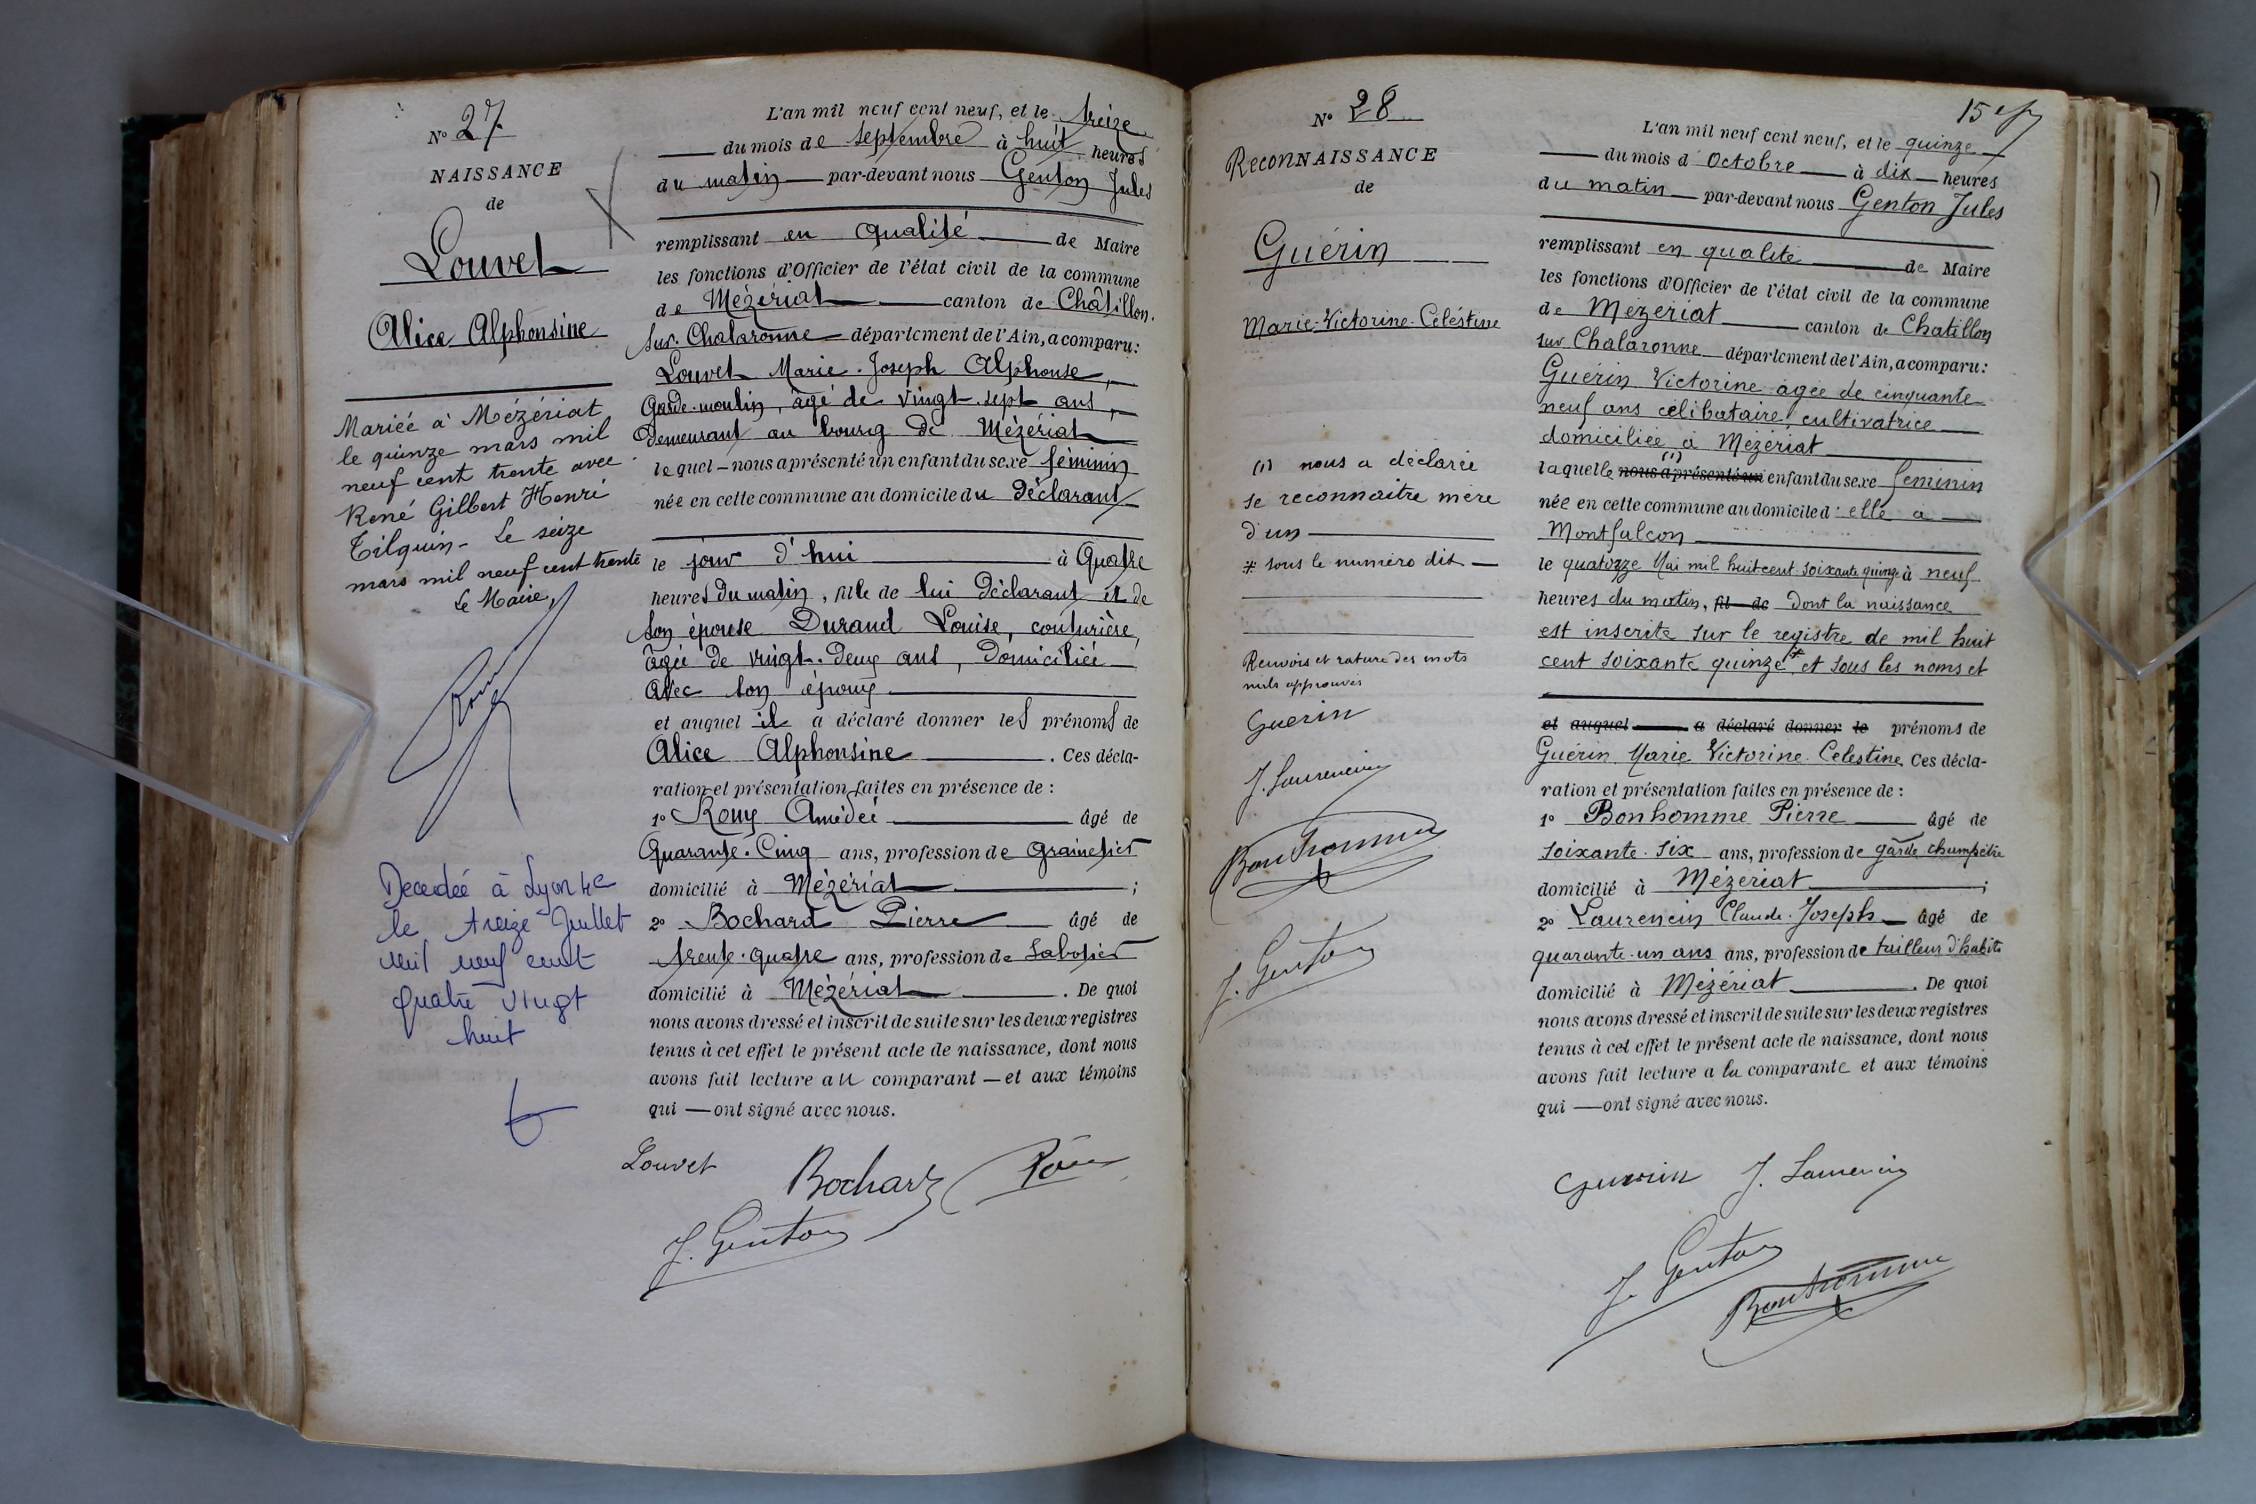 N° 27
NAISSANCE
de
Louvet
Alice Alphonsine
Mariée à Mézériat
le quinze mars mil
neuf cent trente avec
René Gilbert Henri
Tilquin - Le seize
mars mil neuf cent trente
Le Maire,
Decedeé à Lyon 4e
le treize Juillet
mil neuf cent
quatre vingt
huit
L'an mil neuf cent neuf, et le treize
du mois de septembre à huit heures
du matin par-devant nous Genton Jules
remplissant en qualité de Maire
les fonctions d'Officier de l'état civil de la commune
de Mézériat canton de Châtillon-
sur-Chalaronne département de l'Ain, a comparu:
Louvet Marie-Joseph Alphonse,
Garde-moulin, âgé de vingt-sept ans,
demeurant au bourg de Mézériat
lequel - nous a présenté un enfant du sexe féminin
née en cette commune au domicile du déclarant
le jour d'hui à Quatre
heures du matin, fille de lui déclarant et de
son épouse Durand Louise, couturière,
âgée de vingt-deux ans, domiciliée
avec son époux
et auquel il a déclaré donner les prénoms de
Alice Alphonsine . Ces décla-
ration et présentation faites en présence de :
1° Roux Amédée âgé de
Quarante-Cinq ans, profession de Grainetier
domicilié à Mézériat ;
2° Bochard Pierre âgé de
trente-quatre ans, profession de Sabotier
domicilié à Mézériat . De quoi
nous avons dressé et inscrit de suite sur les deux registres
tenus à cet effet le présent acte de naissance, dont nous
avons fait lecture au comparant — et aux témoins
qui — ont signé avec nous.
Louvet Bochard Roux
J. Genton
N° 28
ReconNAISSANCE
de
Guérin
Marie-Victorine-Céléstine
(1) nous a déclarée
se reconnaitre mère
d'un
* sous le numéro dix
Renvois et rature des mots
nuls approuvés
Guerin
J. Laurencin
Bonhomme
J. Genton
15e
L'an mil neuf cent neuf, et le quinze
du mois d'Octobre à dix heures
du matin par-devant nous Genton Jules
remplissant en qualité de Maire
les fonctions d'Officier de l'état civil de la commune
de Mézériat canton de Chatillon
sur Chalaronne département de l'Ain, a comparu:
Guérin Victorine agée de cinquante
neuf ans célibataire, cultivatrice
domiciliée à Mezeriat
laquelle (1) nous a présenté un enfant du sexe feminin
née en cette commune au domicile d'elle a
Montfalcon
le quatorze Mai mil huit cent soixante quinze à neuf
heures du matin, fil de dont la naissance
est inscrite sur le registre de mil huit
cent soixante quinze * et sous les noms et
et auquel a déclaré donner le prénoms de
Guérin Marie Victorine Celestine Ces décla-
ration et présentation faites en présence de :
1° Bonhomme Pierre âgé de
soixante-six ans, profession de garde champêtre
domicilié à Mézeriat ;
2° Laurencin Claude-Joseph âgé de
quarante-un ans ans, profession de tailleur d'habits
domicilié à Mézériat . De quoi
nous avons dressé et inscrit de suite sur les deux registres
tenus à cet effet le présent acte de naissance, dont nous
avons fait lecture a la comparante et aux témoins
qui — ont signé avec nous.
Guerin J. Laurencin
J. Genton
Bonhomme